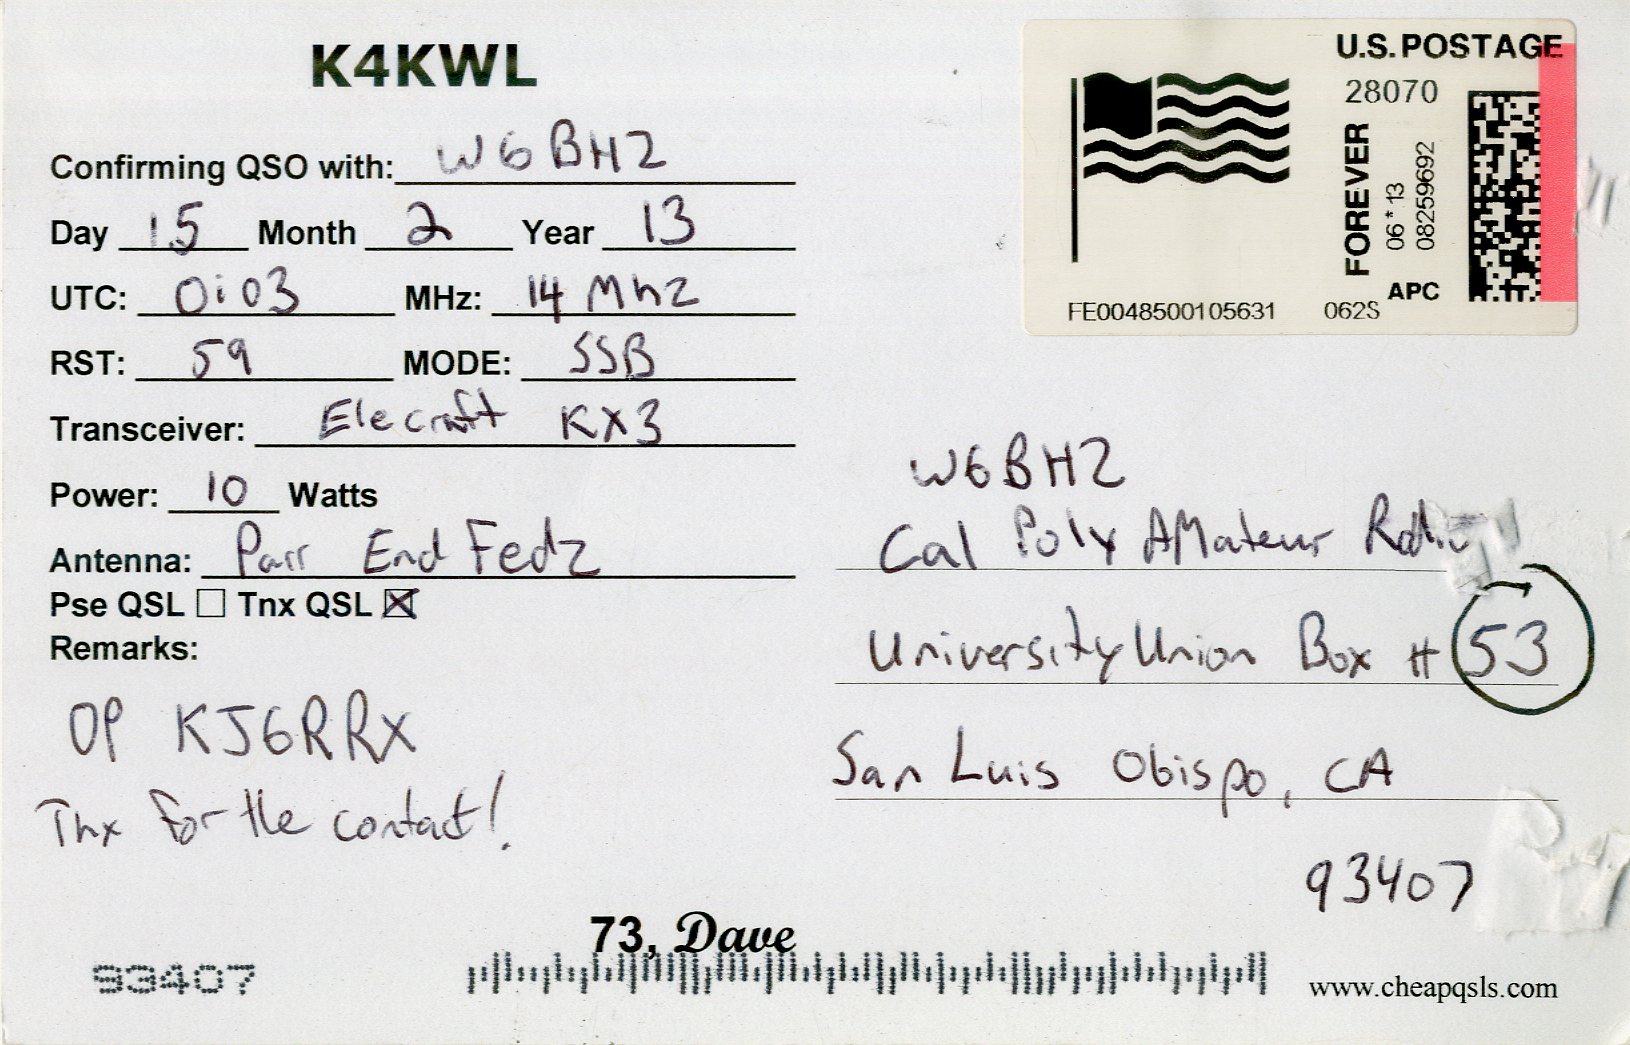 K4KWL
Confirming QSO with: W6BHZ
Day 15 Month 2 Year 13
UTC: 0103 MHz: 14 Mhz
RST: 59 MODE: SSB
Transceiver: Elecraft KX3
Power: 10 Watts
Antenna: Parr End Fedz
Pse QSL Tnx QSL
Remarks:
OP KJ6RRX
Thx for the contact!
73, Dave
93407
U.S. POSTAGE
28070
FOREVER
06*13
08259692
APC
FE0048500105631 062S
W6BHZ
Cal Poly Amateur Radio
University Union Box # 53
San Luis Obispo, CA
93407
www.cheapqsls.com